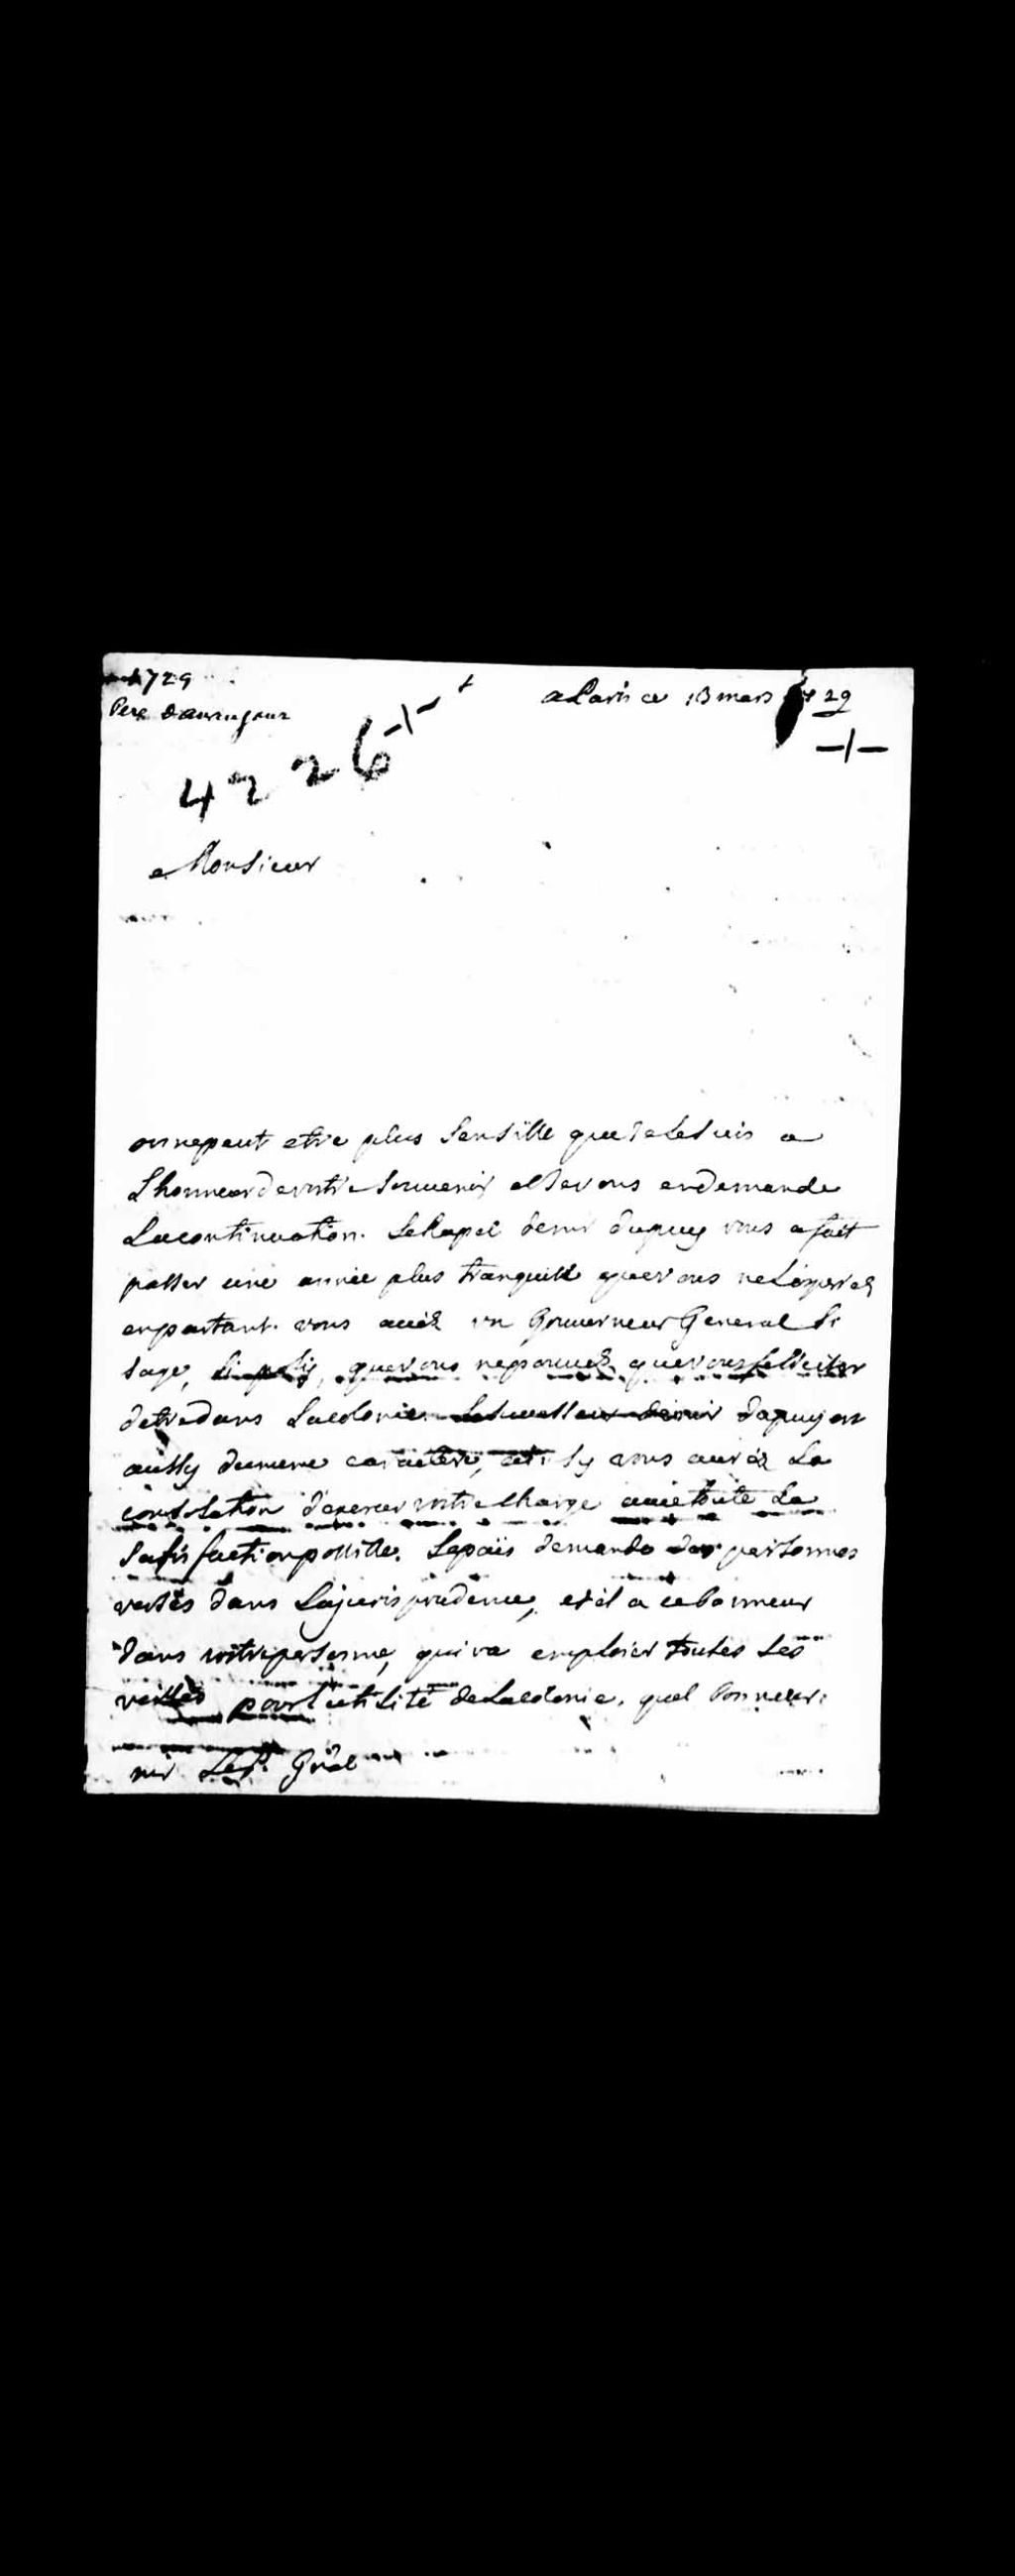 1729
Pere Daurugour
a Paris ce 13 mars 1729
4226
Monsieur
on ne peut etre plus sensible que je le suis a
Lhonneur de votre souvenir et je vous en demande
La continuation. Le Rapel de mr dupuy vous a fait
passer une année plus tranquille que vous ne L'esperiez
en partant. vous avez un Gouverneur General si
sage, si poly, que vous ne pouvez que vous feliciter
detre dans La colonie Le successeur de mr dupuy est
aussy du meme caractere, et sy vous aurez La
consolation d'exercer votre charge avec toute La
satisfaction possible. Le païs demande des personnes
versés dans La jurisprudence, et il a ce bonneur
dans votre personne, qui va emploier toutes ses
veilles pour l'utilité de La colonie. quel bonneur
mr Le P. Gnal